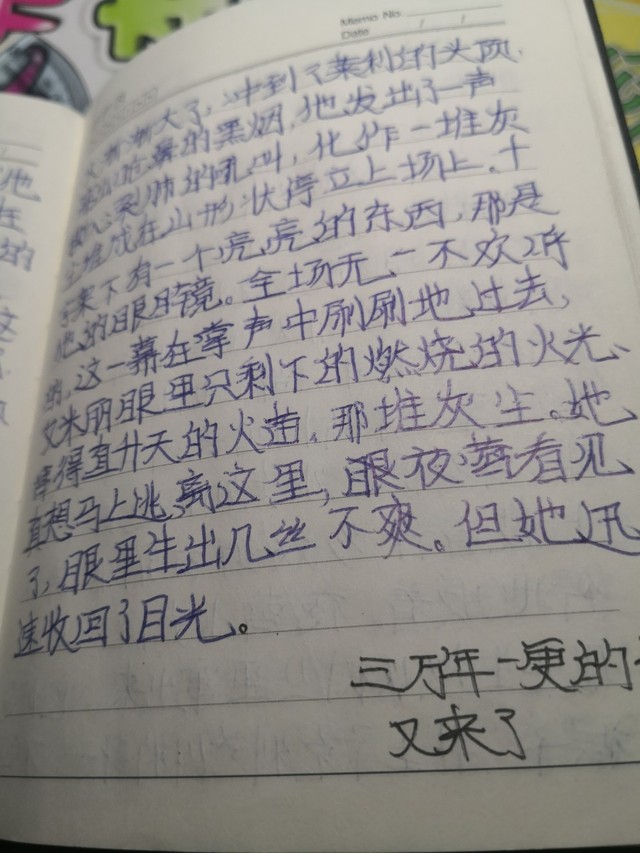 Memo No.
Date / /
渐渐大了，冲到了莱利的头顶，
鼻的黑烟，他发出了一声
裂肺的吼叫，化作一堆灰
堆成在山形状停立上场上。十
字架下有一个亮亮的东西，那是
他的眼睛镜。全场无一不欢呼
的，这一幕在掌声中刷刷地过去，
艾米丽眼里只剩下的燃烧的火光、
窜得直升天的火苗，那堆灰尘。她
直想马上逃离这里，眼夜燕看见
了，眼里生出几丝不爽。但她迅
速收回了目光。
三万年一更的
又来了
他
在
的